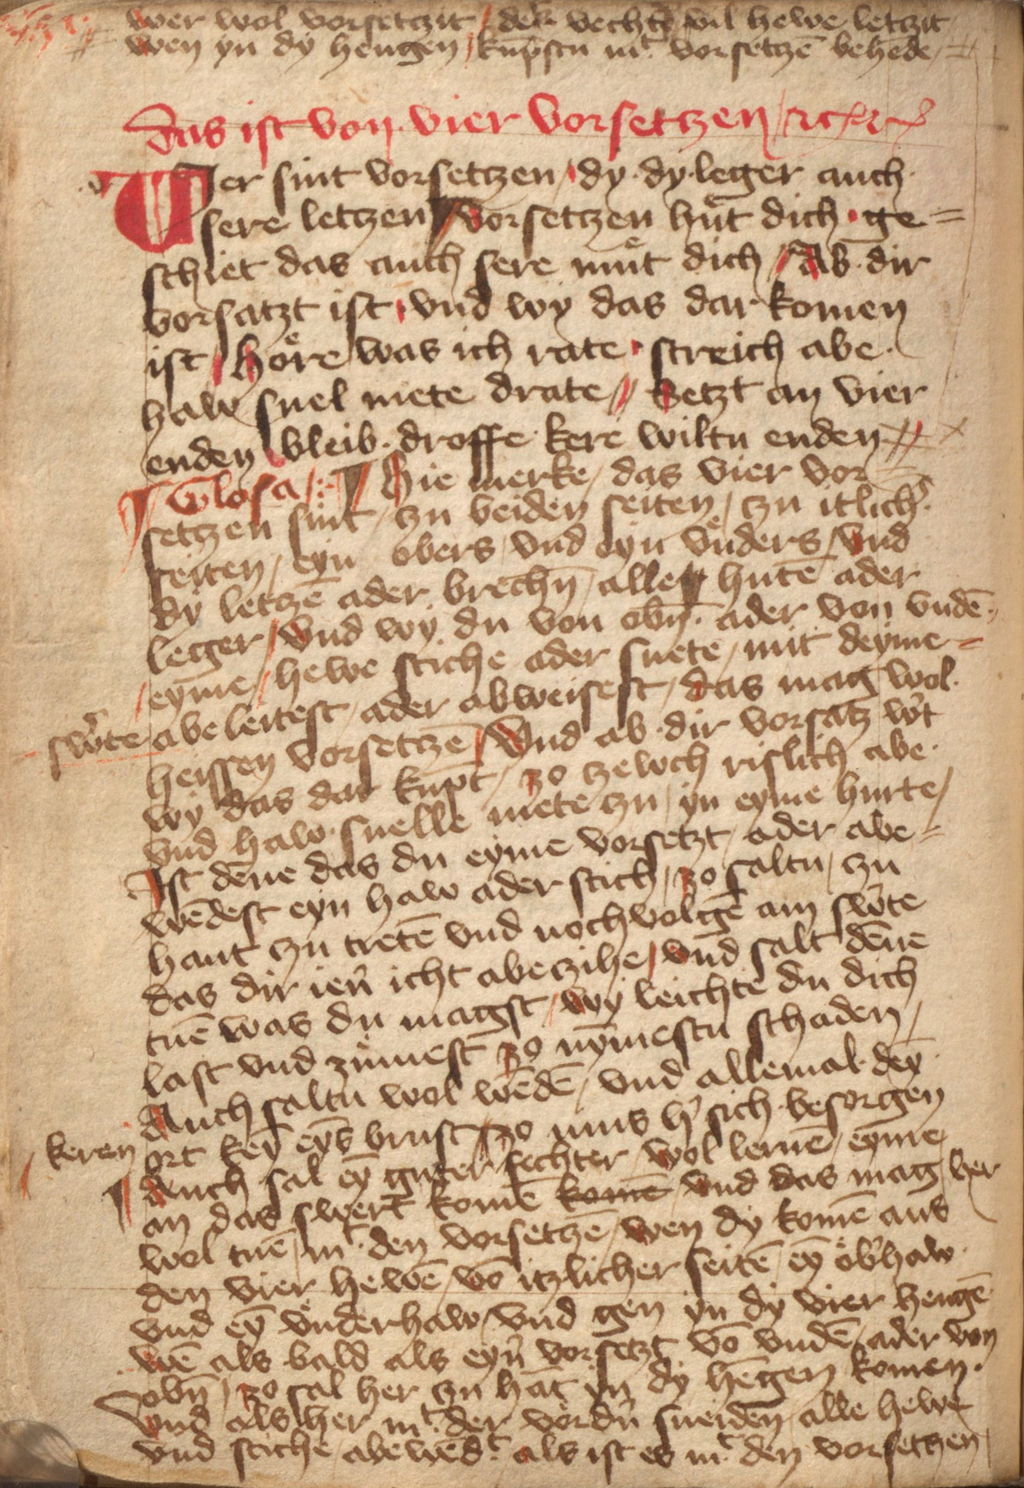 wer wol vorsetczit / der vechtens vil hewe letczit
wen yn dy hengen / kupstu mt vorsetczē behede /
das ist von vier vorsetczen / etcetera
Vier sint vorsetczen / dy dy leger auch
sere letczen / Vorsetczen huͤt dich · ge=
schiet das auch sere muͤt dich / Ab dir
vorsatzt ist / vnd wy das dar komen
ist / hoͤre was ich rate · streich abe
haw snel mete drate // Setzt an vier
enden / bleib droffe kere wiltu enden //
Glosa / Hie merke / das vier vor
setczen sint / zu beiden seiten / zu itlicher
seiten / eyn obers vnd eyn vnders / vnd
dy letczē ader brechn̄ / alle hutē ader
leger / vnd wy du von obn̄ ader von vndē
eyme / hewe stiche ader snete / mit deyme
swerte abeleitest / ader abweisest / das mag wol
heissen vorsetczē / Vnd ab dir vorsatz wirt
wy das dar kupt / zo czewch rislich abe
vnd haw snelle mete zu / yn eyme hurte /
Ist dēne das du eyme vorsetzt / ader abe=
wēdest eyn haw ader stich / zo saltu / zu
hant zu tretē vnd nochvolgē am swerte
das dir ien̄ icht abeczihe / vnd salt dēne
tuē was du magst / wy leichte du dich
last vnd zuͤmest / zo nȳmestu schaden /
Auch saltu wol wēdē / vnd allemal dey̅
ort key̅ eyns brust keren / zo mus her sich besorgen
Auch sal ey̅ guter fechter / wol lernē / eyme
an das swert komē komē vnd das mag her
wol tuē / mt den vorsetczē / wen dy komē aus
den vier hewē / vō itzlicher seitē / ey̅ oͤberhaw
vnd ey̅ vnderhaw / vnd gen yn dy vier hengē
wē als bald als eyn̄ vorsetzt vō vndē / ader von
obn̄ / zo sal her zu hāt yn dy hēgen komen
vnd als her mt der vordn̄ sneiden / alle hewe
vnd stiche abewendt / als ist es mt den vorsetczen /